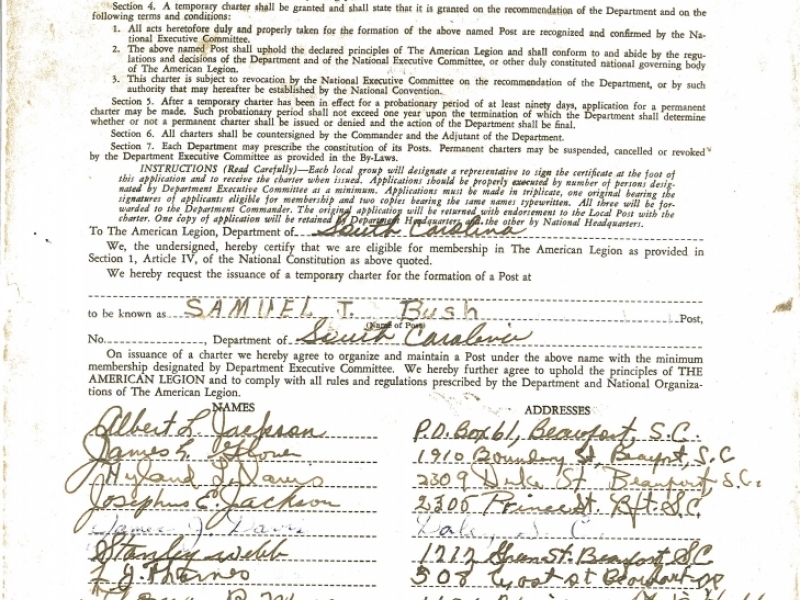 Section 4. A temporary charter shall be granted and shall state that it is granted on the recommendation of the Department and on the
following terms and conditions:
1. All acts heretofore duly and properly taken for the formation of the above named Post are recognized and confirmed by the Na-
tional Executive Committee.
2. The above named Post shall uphold the declared principles of The American Legion and shall conform to and abide by the regu-
lations and decisions of the Department and of the National Executive Committee, or other duly constituted national governing body
of The American Legion.
3. This charter is subject to revocation by the National Executive Committee on the recommendation of the Department, or by such
authority that may hereafter be established by the National Convention.
Section 5. After a temporary charter has been in effect for a probationary period of at least ninety days, application for a permanent
charter may be made. Such probationary period shall not exceed one year upon the termination of which the Department shall determine
whether or not a permanent charter shall be issued or denied and the action of the Department shall be final.
Section 6. All charters shall be countersigned by the Commander and the Adjutant of the Department.
Section 7. Each Department may prescribe the constitution of its Posts. Permanent charters may be suspended, cancelled or revoked
by the Department Executive Committee as provided in the By-Laws.
INSTRUCTIONS (Read Carefully)—Each local group will designate a representative to sign the certificate at the foot of
this application and to receive the charter when issued. Applications should be properly executed by number of persons desig-
nated by Department Executive Committee as a minimum. Applications must be made in triplicate, one original bearing the
signatures of applicants eligible for membership and two copies bearing the same names typewritten. All three will be for-
warded to the Department Commander. The original application will be returned with endorsement to the Local Post with the
charter. One copy of application will be retained by Department Headquarters, the other by National Headquarters.
To The American Legion, Department of South Carolina
We, the undersigned, hereby certify that we are eligible for membership in The American Legion as provided in
Section 1, Article IV, of the National Constitution as above quoted.
We hereby request the issuance of a temporary charter for the formation of a Post at
to be known as SAMUEL J. Bush Post,
(Name of Post)
No. , Department of South Carolina
On issuance of a charter we hereby agree to organize and maintain a Post under the above name with the minimum
membership designated by Department Executive Committee. We hereby further agree to uphold the principles of THE
AMERICAN LEGION and to comply with all rules and regulations prescribed by the Department and National Organiza-
tions of The American Legion.
NAMES ADDRESSES
Albert L. Jackson P.O. Box 61, Beaufort, S.C.
James L. Glover 1910 Boundary St, Beaufort, S.C
Hyland L. Davis 2309 Duke St. Beaufort, S.C.
Josephus E. Jackson 2305 Prince St. Bft. S.C.
James J. Davis S. C.
Stanley Webb 1212 Green St. Beaufort SC
Thomas 508 st Beaufort